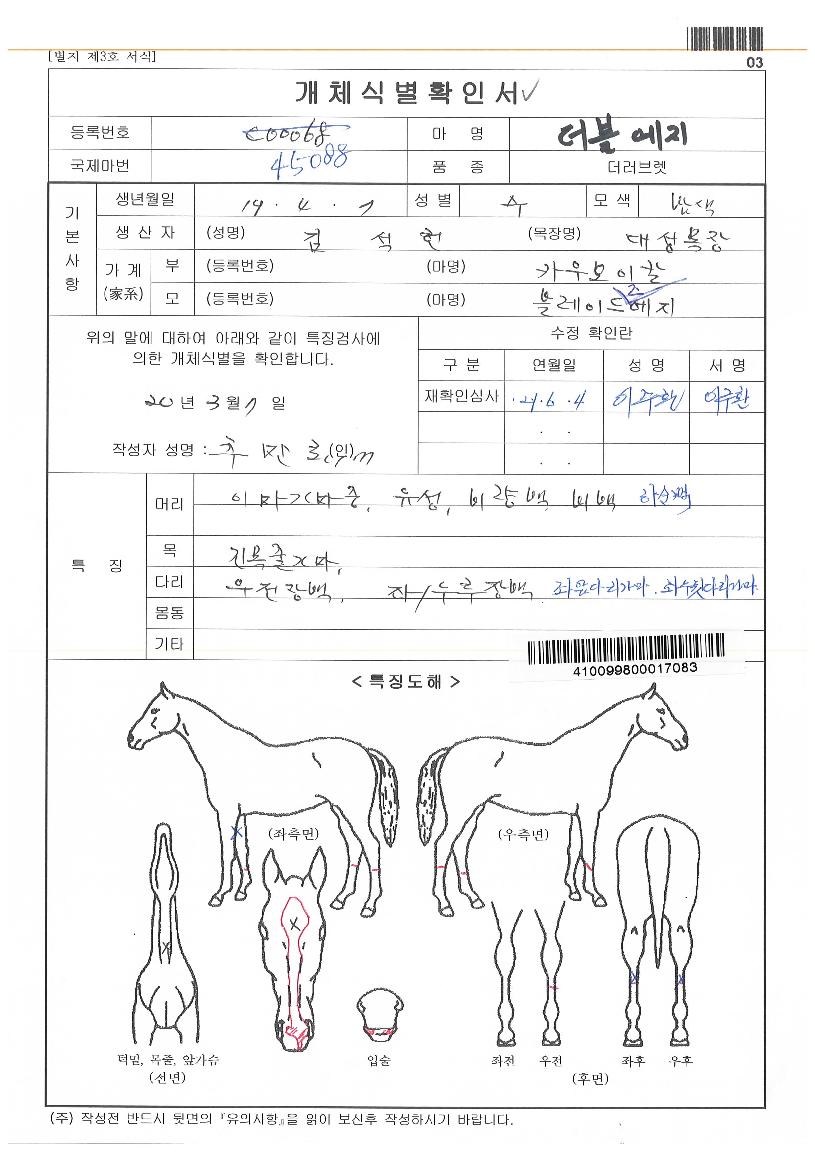 03
[별지 제3호 서식]
개체식별확인서✓
등록번호 C00068 마 명 더블에지
국제마번 45088 품 종 더러브렛
기본사항
생년월일 19 . 4 . 7 성별 수 모색 밤색
생산자 (성명) 김석헌 (목장명) 대성목장
가계(家系) 부 (등록번호) (마명) 카우보이칼
모 (등록번호) (마명) 블레이드에지
위의 말에 대하여 아래와 같이 특징검사에
의한 개체식별을 확인합니다.
20년 3월 7일
작성자 성명 : (인)
수정 확인란
구 분 연월일 성 명 서 명
재확인심사 21. 6 . 4 이주환 이주환
. .
. .
특 징
머리 이마가마중, 유성, 비량백 비백 하순백
목 진목줄가마,
다리 우전장백, 좌/누루장백
몸통
기타
410099800017083
< 특징도해 >
(좌측면)
(우측면)
턱밑, 목줄, 앞가슴
(선면)
입술
좌전 우전 좌후 우후
(후면)
(주) 작성전 반드시 뒷면의 『유의사항』을 읽어 보신후 작성하시기 바랍니다.